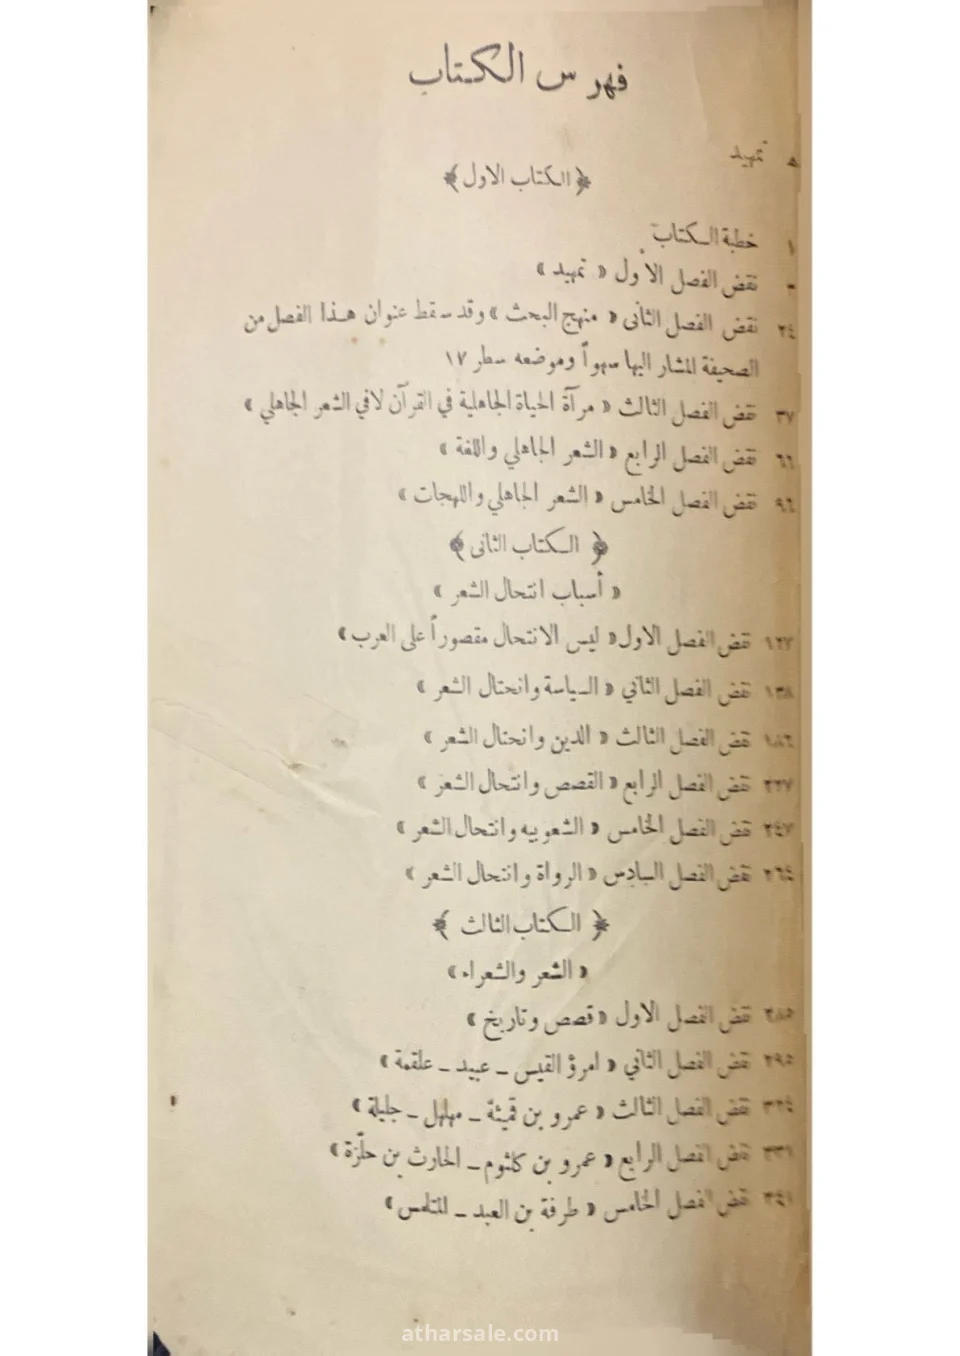 فهرس الكتاب
ه تمهيد
﴿ الكتاب الاول ﴾
١ خطبة الكتاب
نقض الفصل الأول « تمهيد »
٢٤ نقض الفصل الثانى « منهج البحث » وقد سقط عنوان هذا الفصل من
الصحيفة المشار اليها سهواً وموضعه سطر ١٧
٣٧ نقض الفصل الثالث « مرآة الحياة الجاهلية في القرآن لا في الشعر الجاهلي »
٦٦ نقض الفصل الرابع « الشعر الجاهلي واللغة »
٩٦ نقض الفصل الخامس « الشعر الجاهلي واللهجات »
﴿ الكتاب الثانى ﴾
« أسباب انتحال الشعر »
١٢٧ نقض الفصل الاول « ليس الانتحال مقصوراً على العرب »
١٣٨ نقض الفصل الثاني « السياسة وانتحال الشعر »
١٨٦ نقض الفصل الثالث « الدين وانتحال الشعر »
٢٢٧ نقض الفصل الرابع « القصص وانتحال الشعر »
٢٤٧ نقض الفصل الخامس « الشعوبيه وانتحال الشعر »
٢٦٤ نقض الفصل السادس « الرواة وانتحال الشعر »
﴿ الكتاب الثالث ﴾
« الشعر والشعراء »
٢٨٥ نقض الفصل الاول « قصص وتاريخ »
٢٩٥ نقض الفصل الثاني « امرؤ القيس ـ عبيد ـ علقمة »
٣٢٤ نقض الفصل الثالث « عمرو بن قميئة ـ مهلهل ـ جليلة »
٣٣١ نقض الفصل الرابع « عمرو بن كلثوم ـ الحارث بن حلّزة »
٣٤١ نقض الفصل الخامس « طرفة بن العبد ـ المتلمس »
atharsale.com